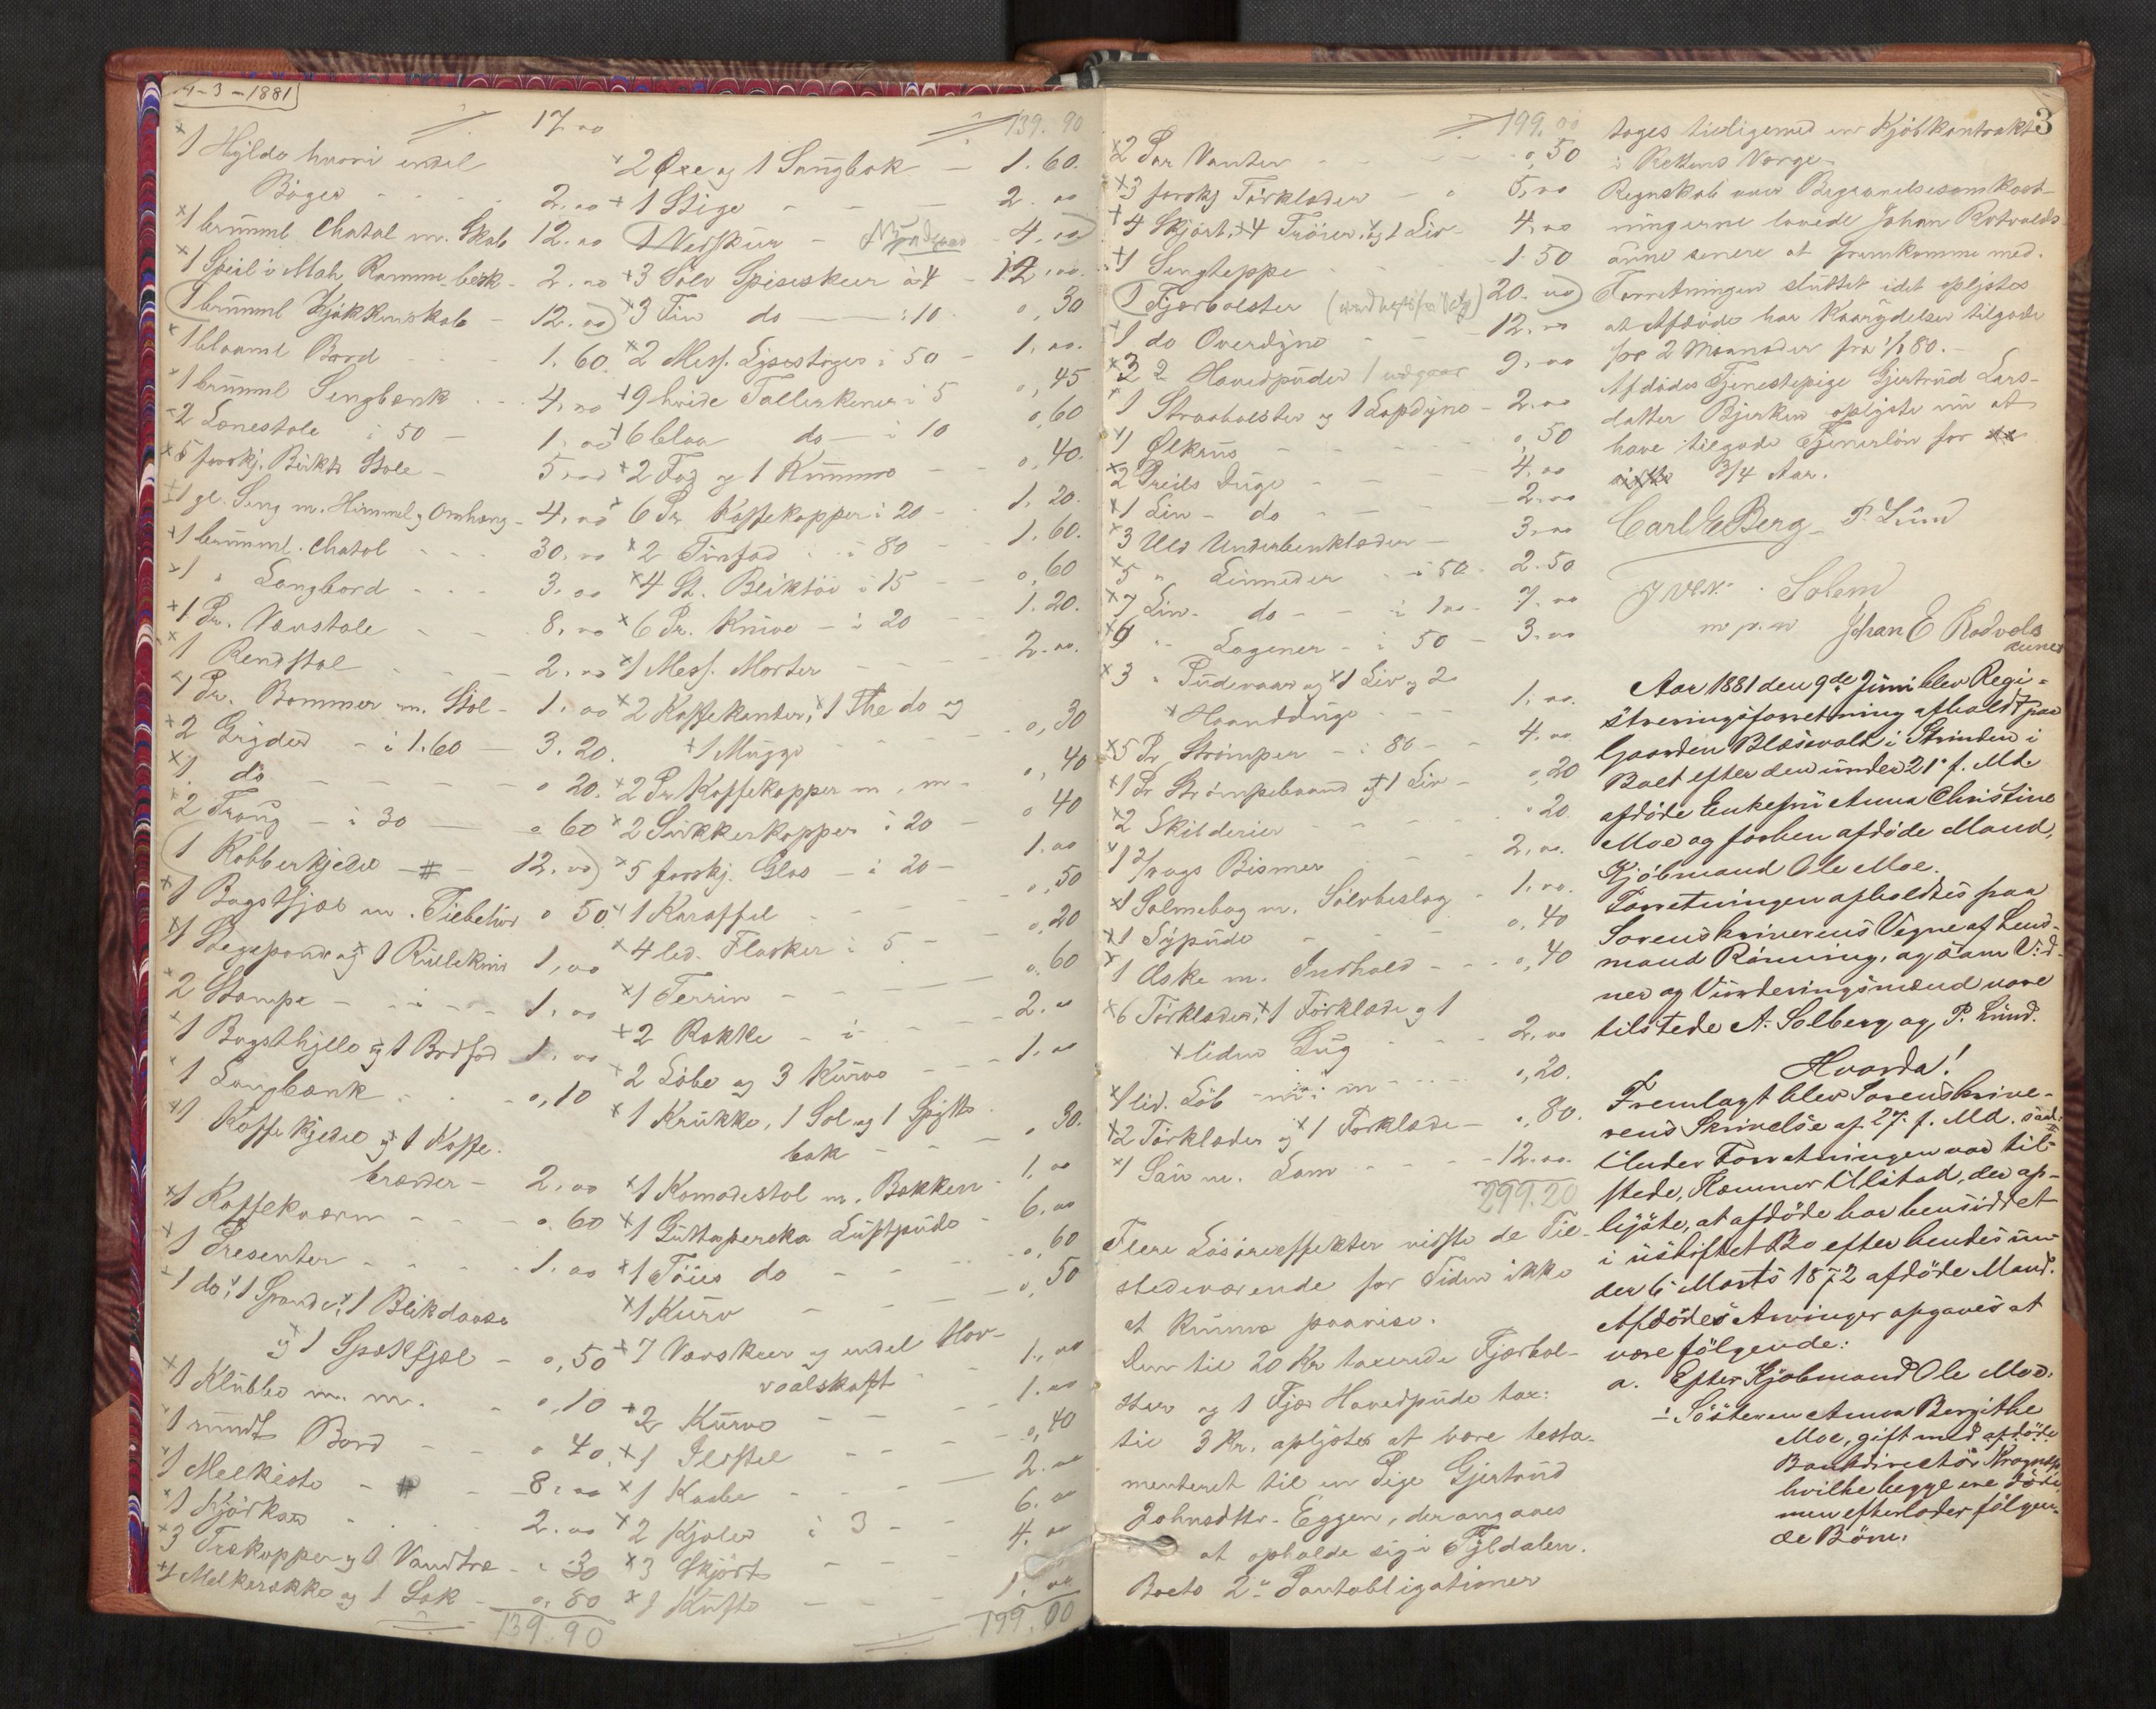 4-3-1881
17.00
×1 Hylde hvori endel
Böger - 2.00
×1 brunml Chatol m. Skab 12.00
×1 Speil i Mah Ramme besk - 2.00
(1 brunml Kjökkenskab - 12.00)
×1 blaaml Bord - 1.60
×1 brunml Sengbænk - 4.00
×2 Lænestole à 50 - 1.00
×5 forskj. Birke Stole - 5.00
×1 gl. Seng m. Himmel og Omhæng - 4.00
×1 brunml. Chatol - 30.00
×1 " Langbord - 3.00
×1 Pr. Vævstole - 8.00
×1 Rendstol - 2.00
×1 Pr. Bommer m. Stol - 1.00
×2 Gryder - à 1.60 - 3.20.
×1 do - 0 20.
×2 Traug - à 30 - 0 60
(1 Kobberkjedel - # - 12.00)
×1 Bagstfjæl m. Tilbehör 0 50
×1 Stegepande og ×1 Rullekniv 1,00
×2 Stampe - 1.00
×1 Bagsthjelle og 1 Brödfad 1.00
×1 Langbænk - 0,10
×1 Kaffekjedel og ×1 Kaffe-
brænder - 2.00
×1 Kaffekværn - 0.60
×1 Presenter - 1.00
×1 do, ×1 Spande, ×1 Blikdaase
og ×1 Spækfjæl - 0,50
×1 Klubbe m. m. - 0,10
×1 rundt Bord - 0 40
×1 Melkiste - # - 8.00
×1 Kjörkar - 2.00
×3 Trækopper og 1 Vandtræ - 30
×4 Melkerække og 1 Sæk - 0.80
139.90
139.90
×2 Öxe og 1 Sangbok - 1.60.
×1 Stige - 2.00
(1 Vedskur - Udgaar - 4.00)
×3 Sölv Spiseskeer à 4 - 12.00.
×3 Tin do - à 10 0,30
×2 Mess. Lysestager à 50 - 1.00.
×9 hvide Tallerkener à 5 0,45
×6 blaa do - à 10 0,60
×2 Fad og 1 Kumme - 0,40.
×6 Pr. Kaffekopper à 20 - 1.20.
×2 Tinfad à 80 - 1.60.
×4 St. Bliktöi à 15 - 0,60
×6 Pr. Knive - à 20 - 1.20.
×1 Mess. Morter - 2.00.
×2 Kaffekander, ×1 The do og
×1 Mugge - 0,30
×2 Pr Kaffekopper m, m - 0,40
×2 Sukkerkopper à 20 - 0 40
×5 forskj. Glas - à 20 - 1.00
×1 Karaffel - 0,50
×4 led. Flasker à 5 - 0,20
×1 Terrin - 0.60
×2 Rokke - 2.00
×2 Löbe og 3 Kurve - 1.00
×1 Krukke, 1 Sol og 1 Spytte-
bak - 0 30.
×1 Komodestol m. Bækken 1.00
×1 Guttapercka Luftpude - 6.00
×1 Töies do - 0,60
×1 Kurv - 0,50
×7 Vævskeer og endel Hov-
voalskaft - 1.00
×2 Kurve - 1.00
×1 Ilsstel - 0,40
×1 Kaabe - 2.00
×2 Kjoler à 3 - 6.00
×3 Skjört - 4.00
×1 Kufte - 1.00
199.00
199.00
×2 Par Vanter - 0,50
×3 forskj Törklæder - 5,00
×4 Skjört, ×4 Tröier, og 1 Liv - 4.00
×1 Sengteppe - 1.50
(1 Fjærbolster 20.00)
×1 do Overdyne - 12.00
×3 2 Hovedpuder 1 udgaar 9.00
×1 Straabolster og 1 Lapdyne - 2.00
×1 Ölkrus - 0,50
×2 Dreils Duge - 4.00
×1 Lin - do - 2.00
×3 Uld Underbenklæder - 3.00
×5 " Linneder - à 50 - 2.50
×7 Lin - do - à 1.00 - 7.00
×6 " - Lagener - à 50 - 3.00
×3 " Pudevaar og ×1 Liv og 2
×Haandduge - 1.00.
×5 Pr Strömper - à 80 - 4.00
×1 Pr Strömpebaand og ×1 Liv - 0,20
×2 Skilderier - 0 20.
×1 2/vogs Bismer - 2,00.
×1 Salmebog m. Sölvbeslag - 1.00.
×1 Sypude - 0,40
×1 Æske m. Indhold - 0,40
×6 Törklæder, ×1 Forklæde og 1
×liden Dug - 2.00
×1 lid. Löb - m - 0,20.
×2 Törklæder og ×1 Forklæde - 0,80.
×1 Sau m. Lam - 12.00.
299.20
Flere Lösöreeffekter vidste de Til-
stedeværende for Tiden ikke
at kunne paavise.
Den til 20 Kr taxerede Fjærbol-
ster og 1 Fjær Hovedpude tax:
til 3 Kr. oplystes at være testa-
menteret til en Pige Gjertrud
Johnsdttr. Eggen, der angaves
at opholde sig i Tyldalen.
Boets 2de Pantobligationer
3
toges tilligemed en Kjöbkontrakt
i Rettens Værge.
Regnskab over Begravelsesomkost-
ningerne lovede Johan Rotvolds-
aune senere at fremkomme med.
Forretningen sluttet idet oplystes
at Afdöde har Kaarydelser tilgode
for 2 Maaneder fra 1/1 80.-
Afdödes Tjenestepige Gjertrud Lars-
datter Bjerken oplyste nu at
have tilgode Tjenerlön for
3/4 Aar.
Carl E Berg - P. Lund
Iver Solem
m. p. m Johan E Rodvolds
aune
Aar 1881 den 9de Juni blev Regi-
streringsforretning afholdt paa
Gaarden Blæsevold i Strinden i
Boet efter den under 21' f. Md.
afdöde Enkefru Anna Christine
Moe og forhen afdöde Mand,
Kjöbmand Ole Moe.
Forretningen afholdtes paa
Sorenskriverens Vegne af Lens-
mand Rönning, og som Vid-
ner og Vurderingsmænd vare
tilstede A. Solberg og P. Lund.
Hvorda!
Fremlagt blev Sorenskrive-
rens Skrivelse af 27. f. Md. saal:
Under Forretningen var til-
stede, Kæmner Ulstad, der op-
lyste, at afdöde har hensiddet
i uskiftet Bo efter hendes un-
der 6 Marts 1872 afdöde Mand.
Afdödes Arvinger opgaves at
være fölgende:
a. Efter Kjöbmand Ole Moe:
1. Sösteren Anna Bergithe
Moe, gift med afdöde
Bankdirectör
hvilke begge ere döde
men efterlader fölgen-
de Börn: